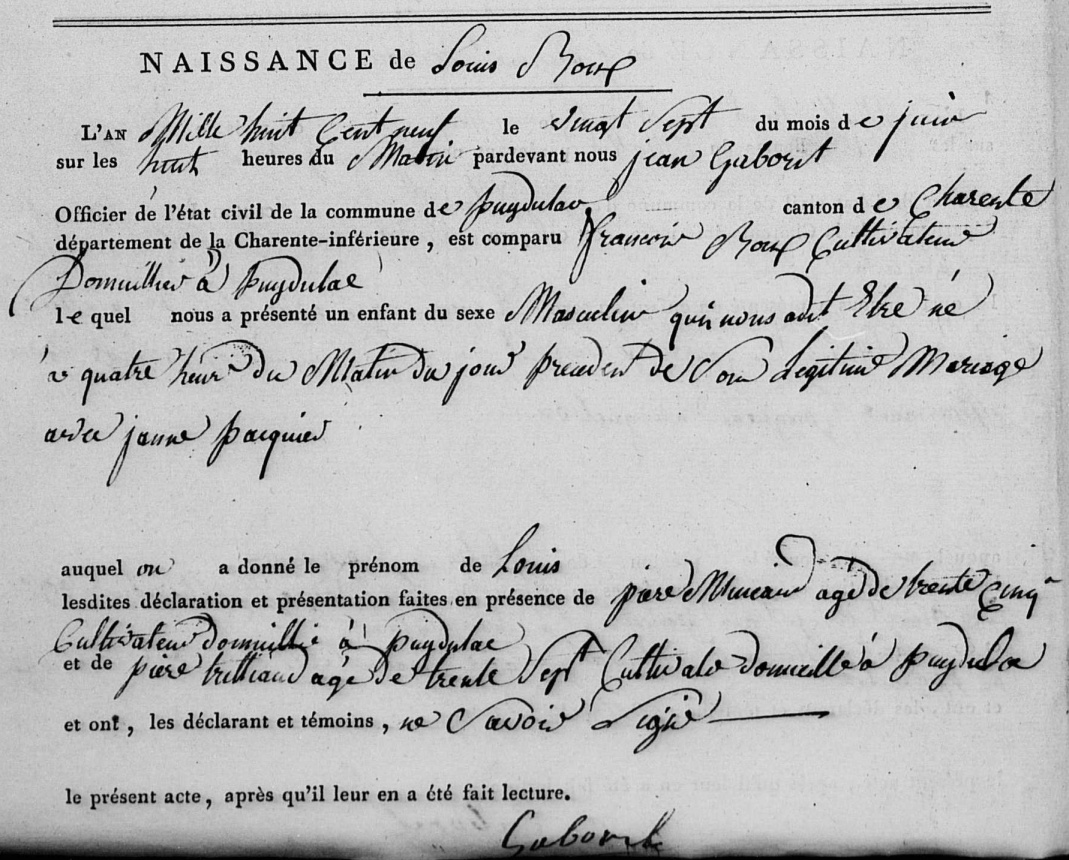 NAISSANCE de Louis Roux
L'AN Mille huit Cent neuf le vingt Sept du mois de juin
sur les huit heures du Matin pardevant nous jean Gaborit
Officier de l'état civil de la commune de puydulac canton de Charente
département de la Charente-inférieure, est comparu francois Roux Cultivateur
Domicillier à puydulac
lequel nous a présenté un enfant du sexe Masculin qui nous a dit Etre né
a quatre heure du Matin du jour precedent de Son Legitime Mariage
avec janne
auquel on a donné le prénom de Louis
lesdites déclaration et présentation faites en présence de piere agé de trente Cinq
Cultivateur domicillié à puydulac
et de piere agé de trente Sept Cultivate domicillé à puydulac
et ont, les déclarant et témoins, ne Savoir Signé
le présent acte, après qu'il leur en a été fait lecture.
Gaborit